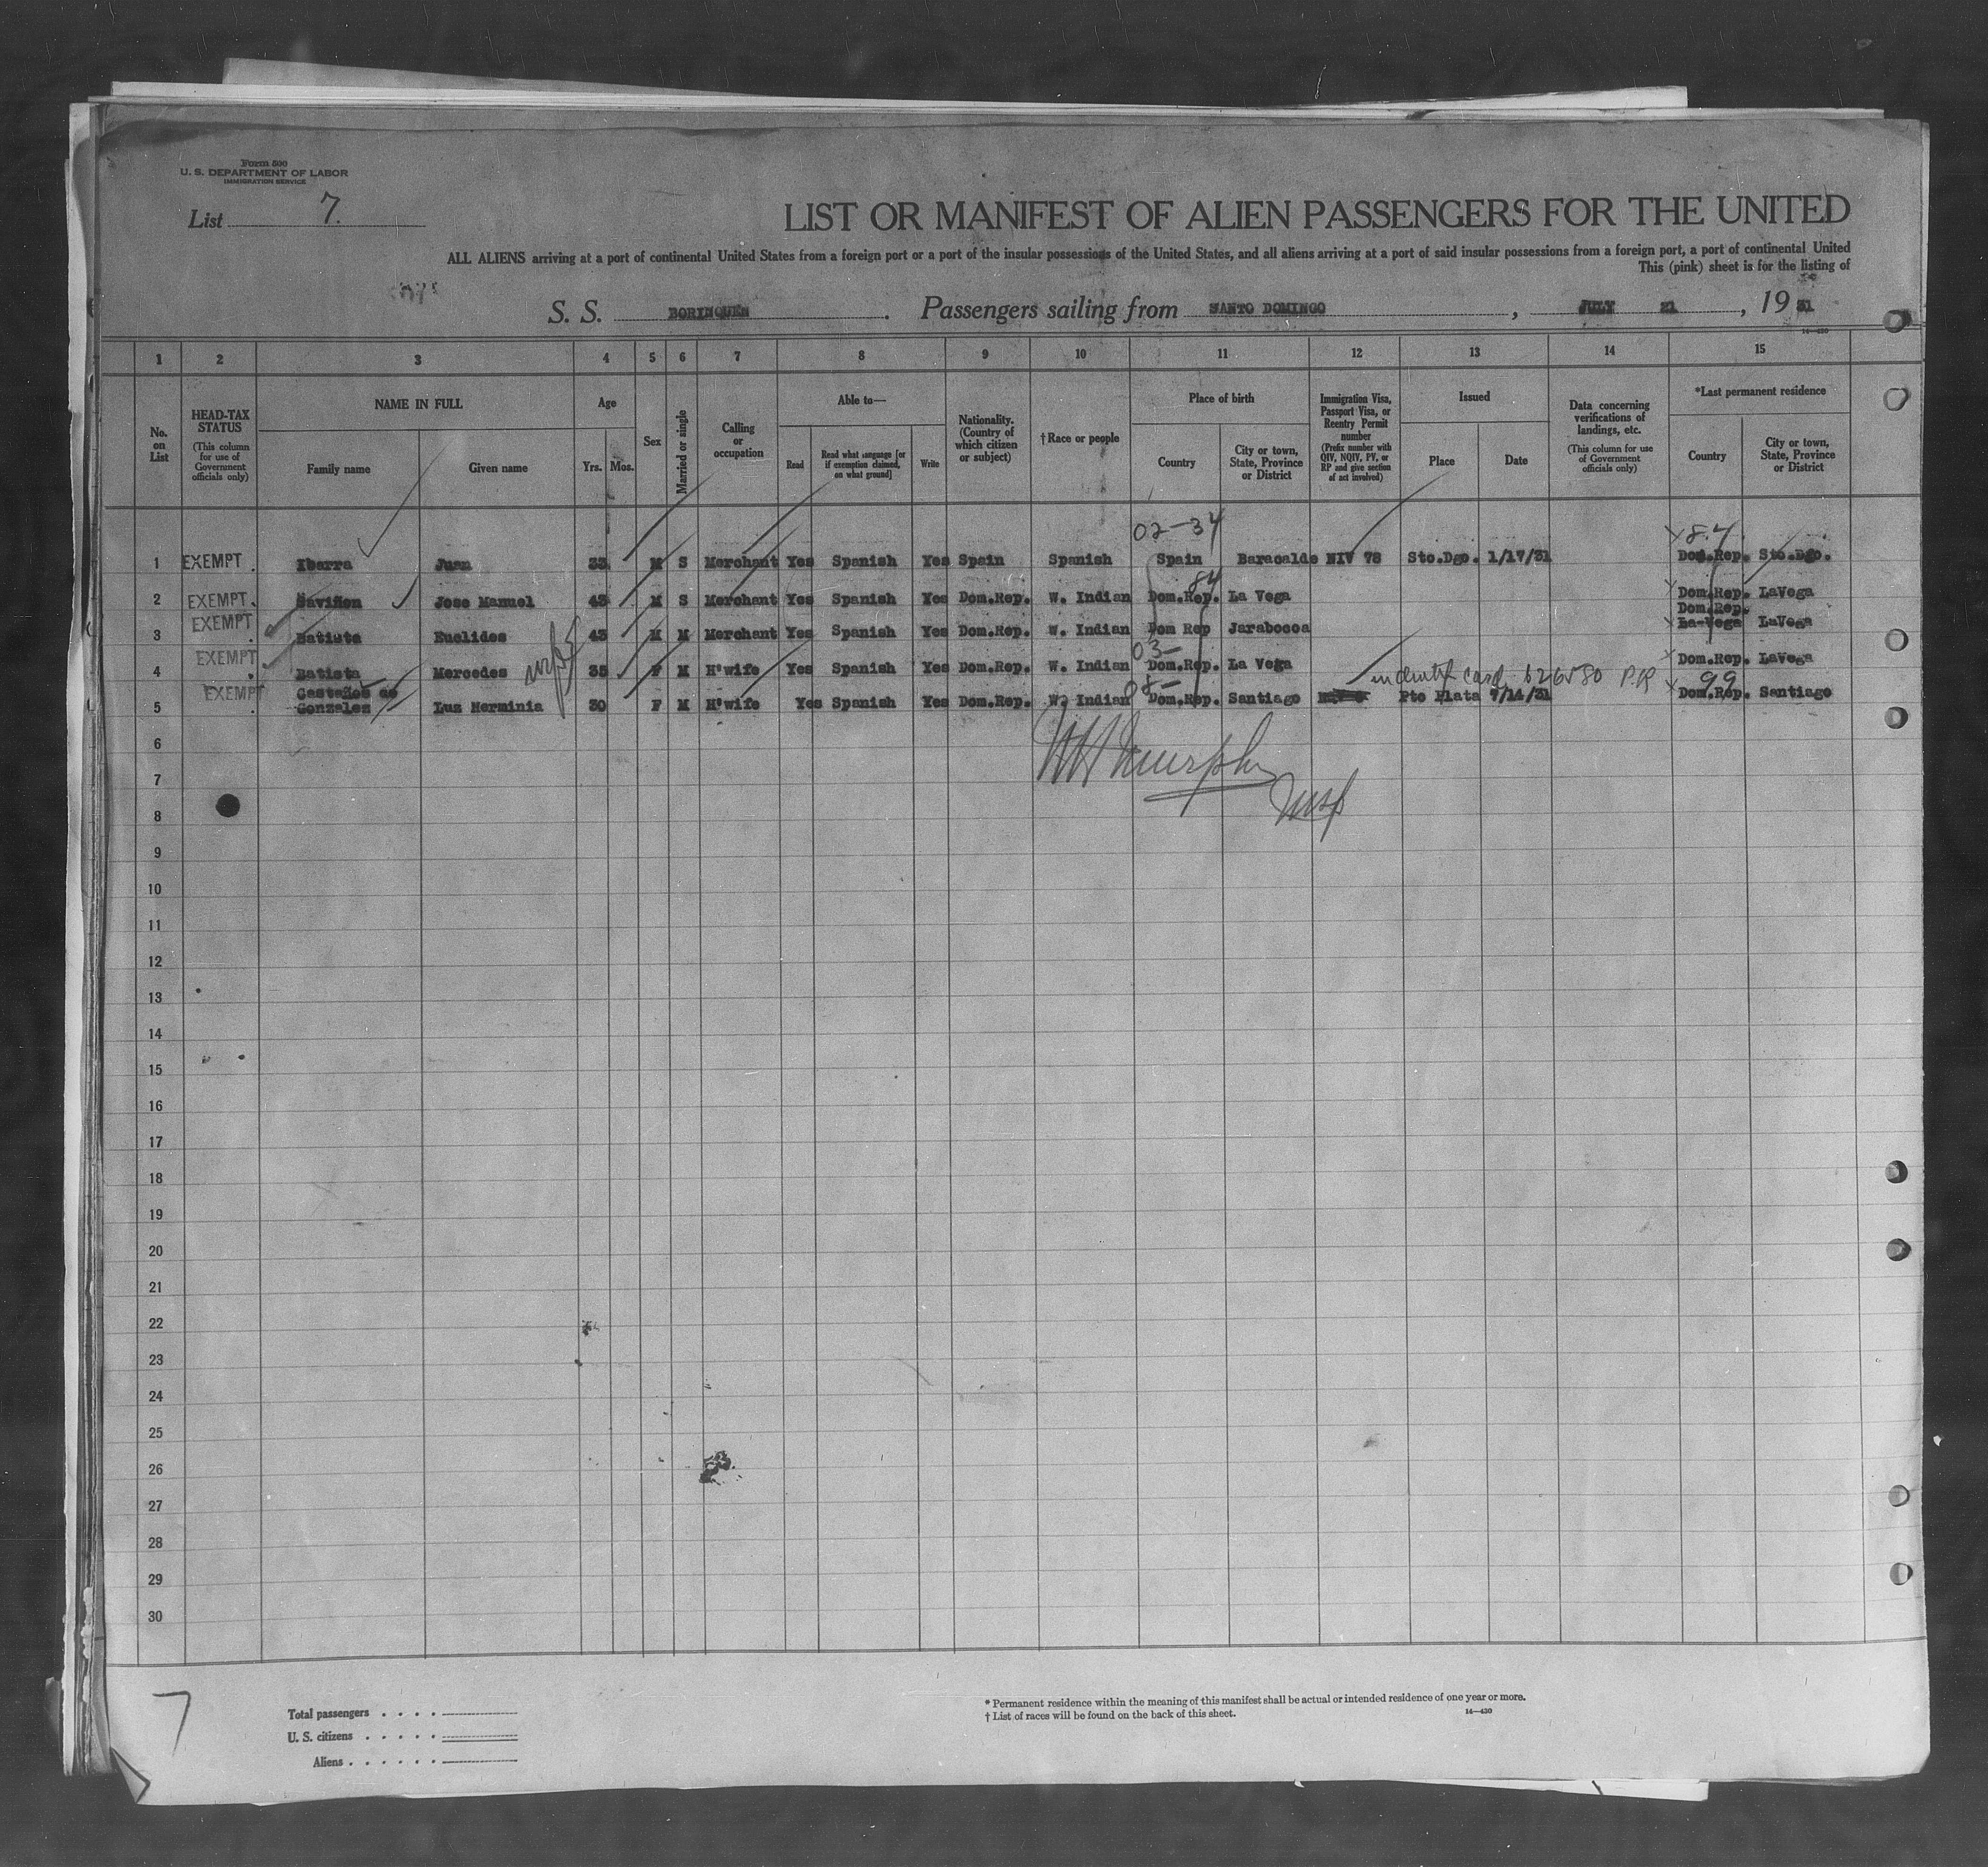 Form 500
U. S. DEPARTMENT OF LABOR
IMMIGRATION SERVICE
List 7.
LIST OR MANIFEST OF ALIEN PASSENGERS FOR THE UNITED
ALL ALIENS arriving at a port of continental United States from a foreign port or a port of the insular possessions of the United States, and all aliens arriving at a port of said insular possessions from a foreign port, a port of continental United
This (pink) sheet is for the listing of
S. S. BORINQUEN. Passengers sailing from SANTO DOMINGO, JULY 21, 19 31
14—430
1 2 3 4 5 6 7 8 9 10 11 12 13 14 15
No. on List
HEAD-TAX STATUS
(This column for use of Government officials only)
NAME IN FULL
Family name
Given name
Age
Yrs.
Mos.
Sex
Married or single
Calling or occupation
Able to—
Read
Read what language [or if exemption claimed, on what ground]
Write
Nationality. (Country of which citizen or subject)
† Race or people
Place of birth
Country
City or town, State, Province or District
Immigration Visa, Passport Visa, or Reentry Permit number
(Prefix number with QIV, NQIV, PV, or RP and give section of act involved)
Issued
Place
Date
Data concerning verifications of landings, etc.
(This column for use of Government officials only)
*Last permanent residence
Country
City or town, State, Province or District
02-34
84
1 EXEMPT Ibarra Juan 33 M S Merchant Yes Spanish Yes Spain Spanish Spain Baracalde NIV 78 Sto.Dgo. 1/17/31 Dom.Rep. Sto.Dgo.
84
2 EXEMPT Saviñon Jose Manuel 43 M S Merchant Yes Spanish Yes Dom.Rep. W. Indian Dom.Rep. La Vega Dom.Rep. LaVega
Dom.Rep.
3 EXEMPT Batista Euclides 43 M M Merchant Yes Spanish Yes Dom.Rep. W. Indian Dom Rep Jarabocoa La-Vega LaVega
wife
03-
4 EXEMPT Batista Mercedes 35 F M H'wife Yes Spanish Yes Dom.Rep. W. Indian Dom.Rep. La Vega Dom.Rep. LaVega
card 626580 PR
99
08-
Castaños de
5 EXEMPT Gonzalez Luz Herminia 30 F M H'wife Yes Spanish Yes Dom.Rep. W. Indian Dom.Rep. Santiago Pto Plata 7/14/31 Dom.Rep. Santiago
6
Murphy
7
8
9
10
11
12
13
14
15
16
17
18
19
20
21
22
23
24
25
26
27
28
29
30
7
Total passengers . . . .
U. S. citizens . . . . .
Aliens . . . . . .
* Permanent residence within the meaning of this manifest shall be actual or intended residence of one year or more.
† List of races will be found on the back of this sheet.
14—430